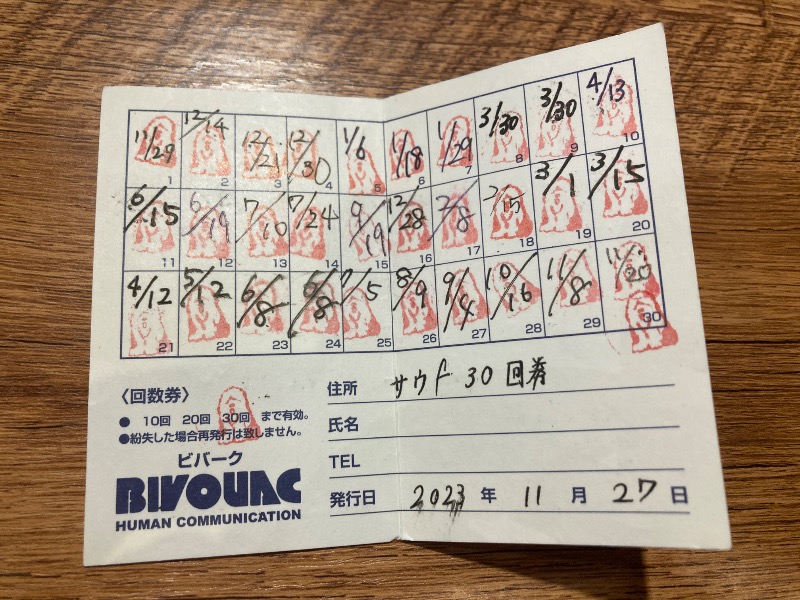 11/29 12/14 12/21 12/30 1/6 1/18 1/29 3/30 3/30 4/13
1 2 3 4 5 6 7 8 9 10
6/15 6/19 7/10 7/24 9/19 12/28 2/8 2/15 3/1 3/15
11 12 13 14 15 16 17 18 19 20
4/12 5/12 6/8 6/8 7/5 8/9 9/4 10/16 11/8 11/20
21 22 23 24 25 26 27 28 29 30
〈回数券〉
● 10回 20回 30回 まで有効。
●紛失した場合再発行は致しません。
ビバーク
BIVOUAC
HUMAN COMMUNICATION
住所 サウナ 30回券
氏名
TEL
発行日 2023 年 11 月 27 日